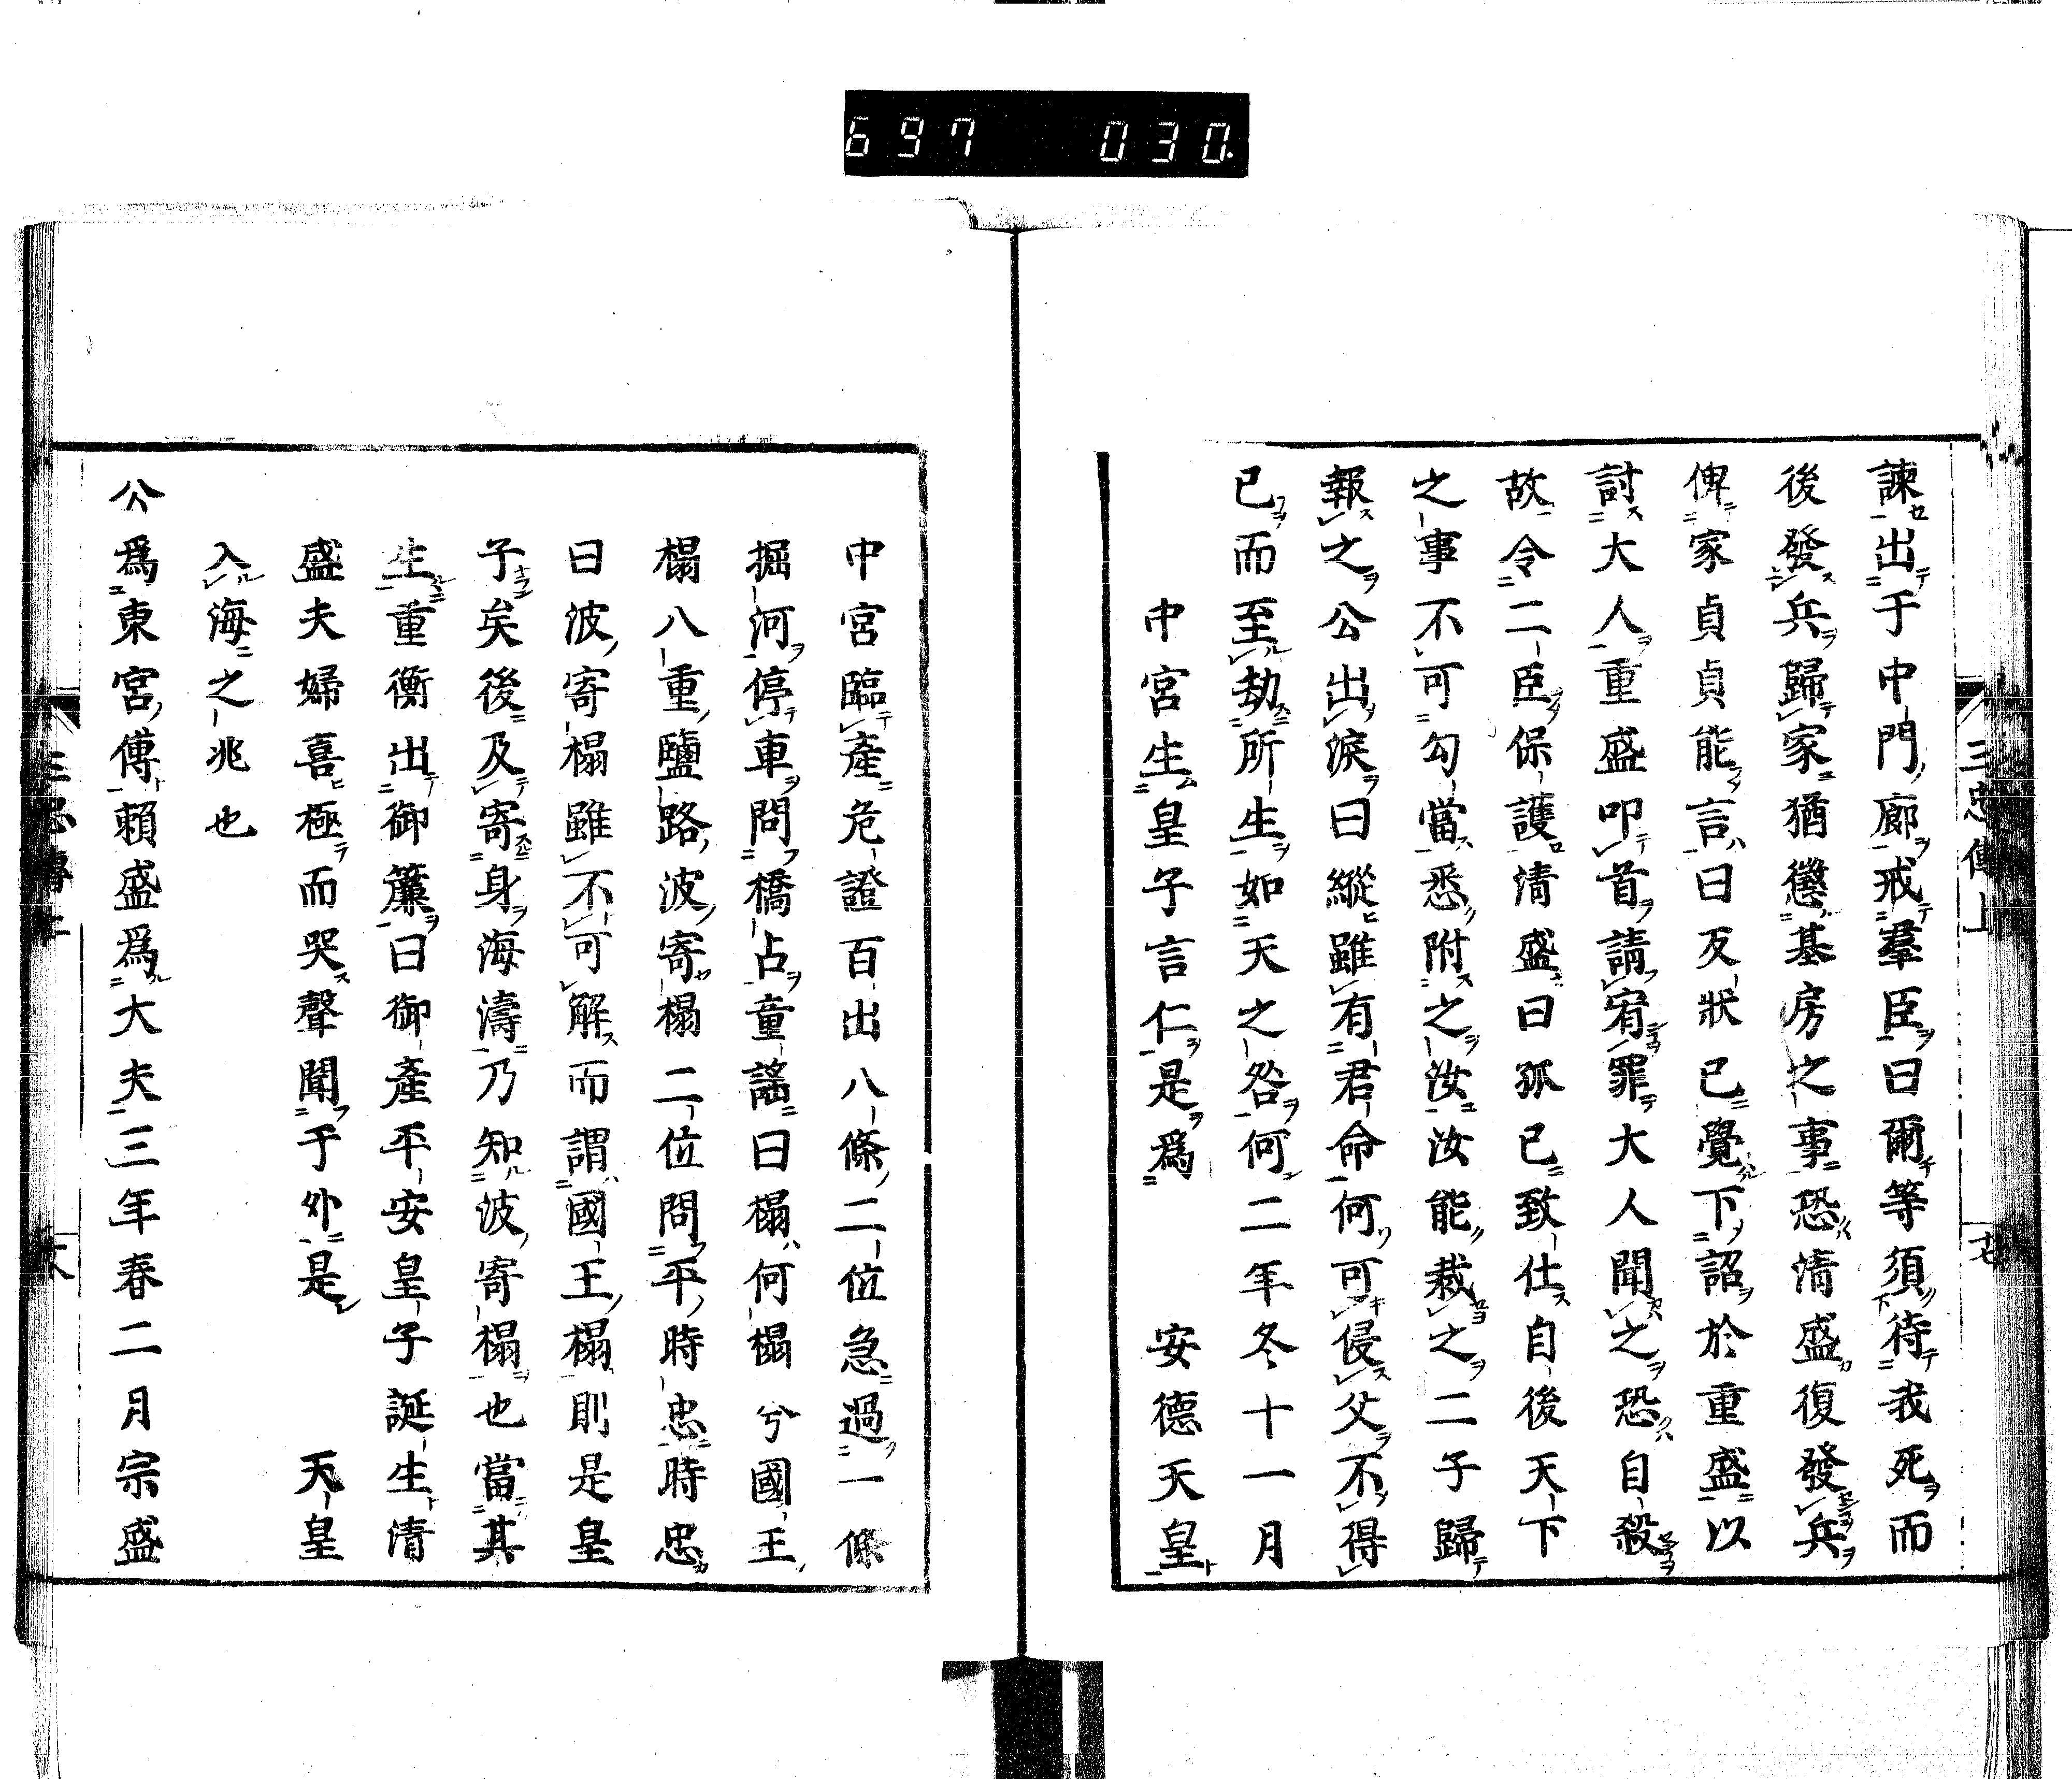 697 030
三忠傳上
十七
諫出于中門廊戒羣臣曰爾等須待我死而
後發兵歸家猶懲基房之事恐清盛復發兵
俾家貞貞能言曰反狀已覺下詔於重盛以
討大人重盛叩首請宥罪大人聞之恐自殺
故令二臣保護清盛曰孤已致仕自後天下
之事不可勾當悉附之汝汝能裁之二子歸
報之公出淚曰縱雖有君命何可侵父不得
已而至劫所生如天之咎何二年冬十一月
中宮生皇子言仁是爲　安德天皇
中宮臨產危證百出八條二位急過一條
掘河停車問橋占童謠曰榻何榻兮國王
榻八重鹽路波寄榻二位問平時忠時忠
曰波寄榻雖不可解而謂國王榻則是皇
子矣後及寄身海濤乃知波寄榻也當其
生重衡出御簾曰御產平安皇子誕生清
盛夫婦喜極而哭聲聞于外是　天皇
入海之兆也
公爲東宮傅賴盛爲大夫三年春二月宗盛